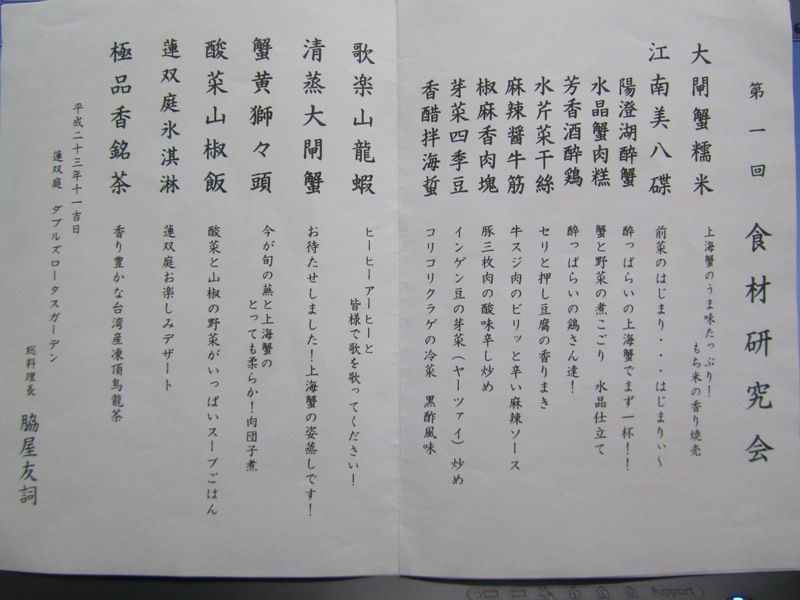 第一回 食材研究会
大閘蟹糯米
上海蟹のうま味たっぷり!
もち米の香り焼売
江南美八碟
前菜のはじまり・・・はじまりぃ〜
陽澄湖酔蟹
酔っぱらいの上海蟹でまず一杯!!
水晶蟹肉糕
蟹と野菜の煮こごり 水晶仕立て
芳香酒酔鶏
酔っぱらいの鶏さん達!
水芹菜干絲
セリと押し豆腐の香りまき
麻辣醤牛筋
牛スジ肉のピリッと辛い麻辣ソース
椒麻香肉塊
豚三枚肉の酸味辛し炒め
芽菜四季豆
インゲン豆の芽菜(ヤーツァイ)炒め
香醋拌海蜇
コリコリクラゲの冷菜 黒酢風味
歌楽山龍蝦
ヒーヒーアーヒーと
皆様で歌を歌ってください!
清蒸大閘蟹
お待たせしました!上海蟹の姿蒸しです!
蟹黄獅々頭
今が旬の蕪と上海蟹の
とっても柔らか!肉団子煮
酸菜山椒飯
酸菜と山椒の野菜がいっぱいスープごはん
蓮双庭氷淇淋
蓮双庭お楽しみデザート
極品香銘茶
香り豊かな台湾産凍頂烏龍茶
平成二十三年十一吉日
蓮双庭 ダブルズロータスガーデン
総料理長 脇屋友詞
Support